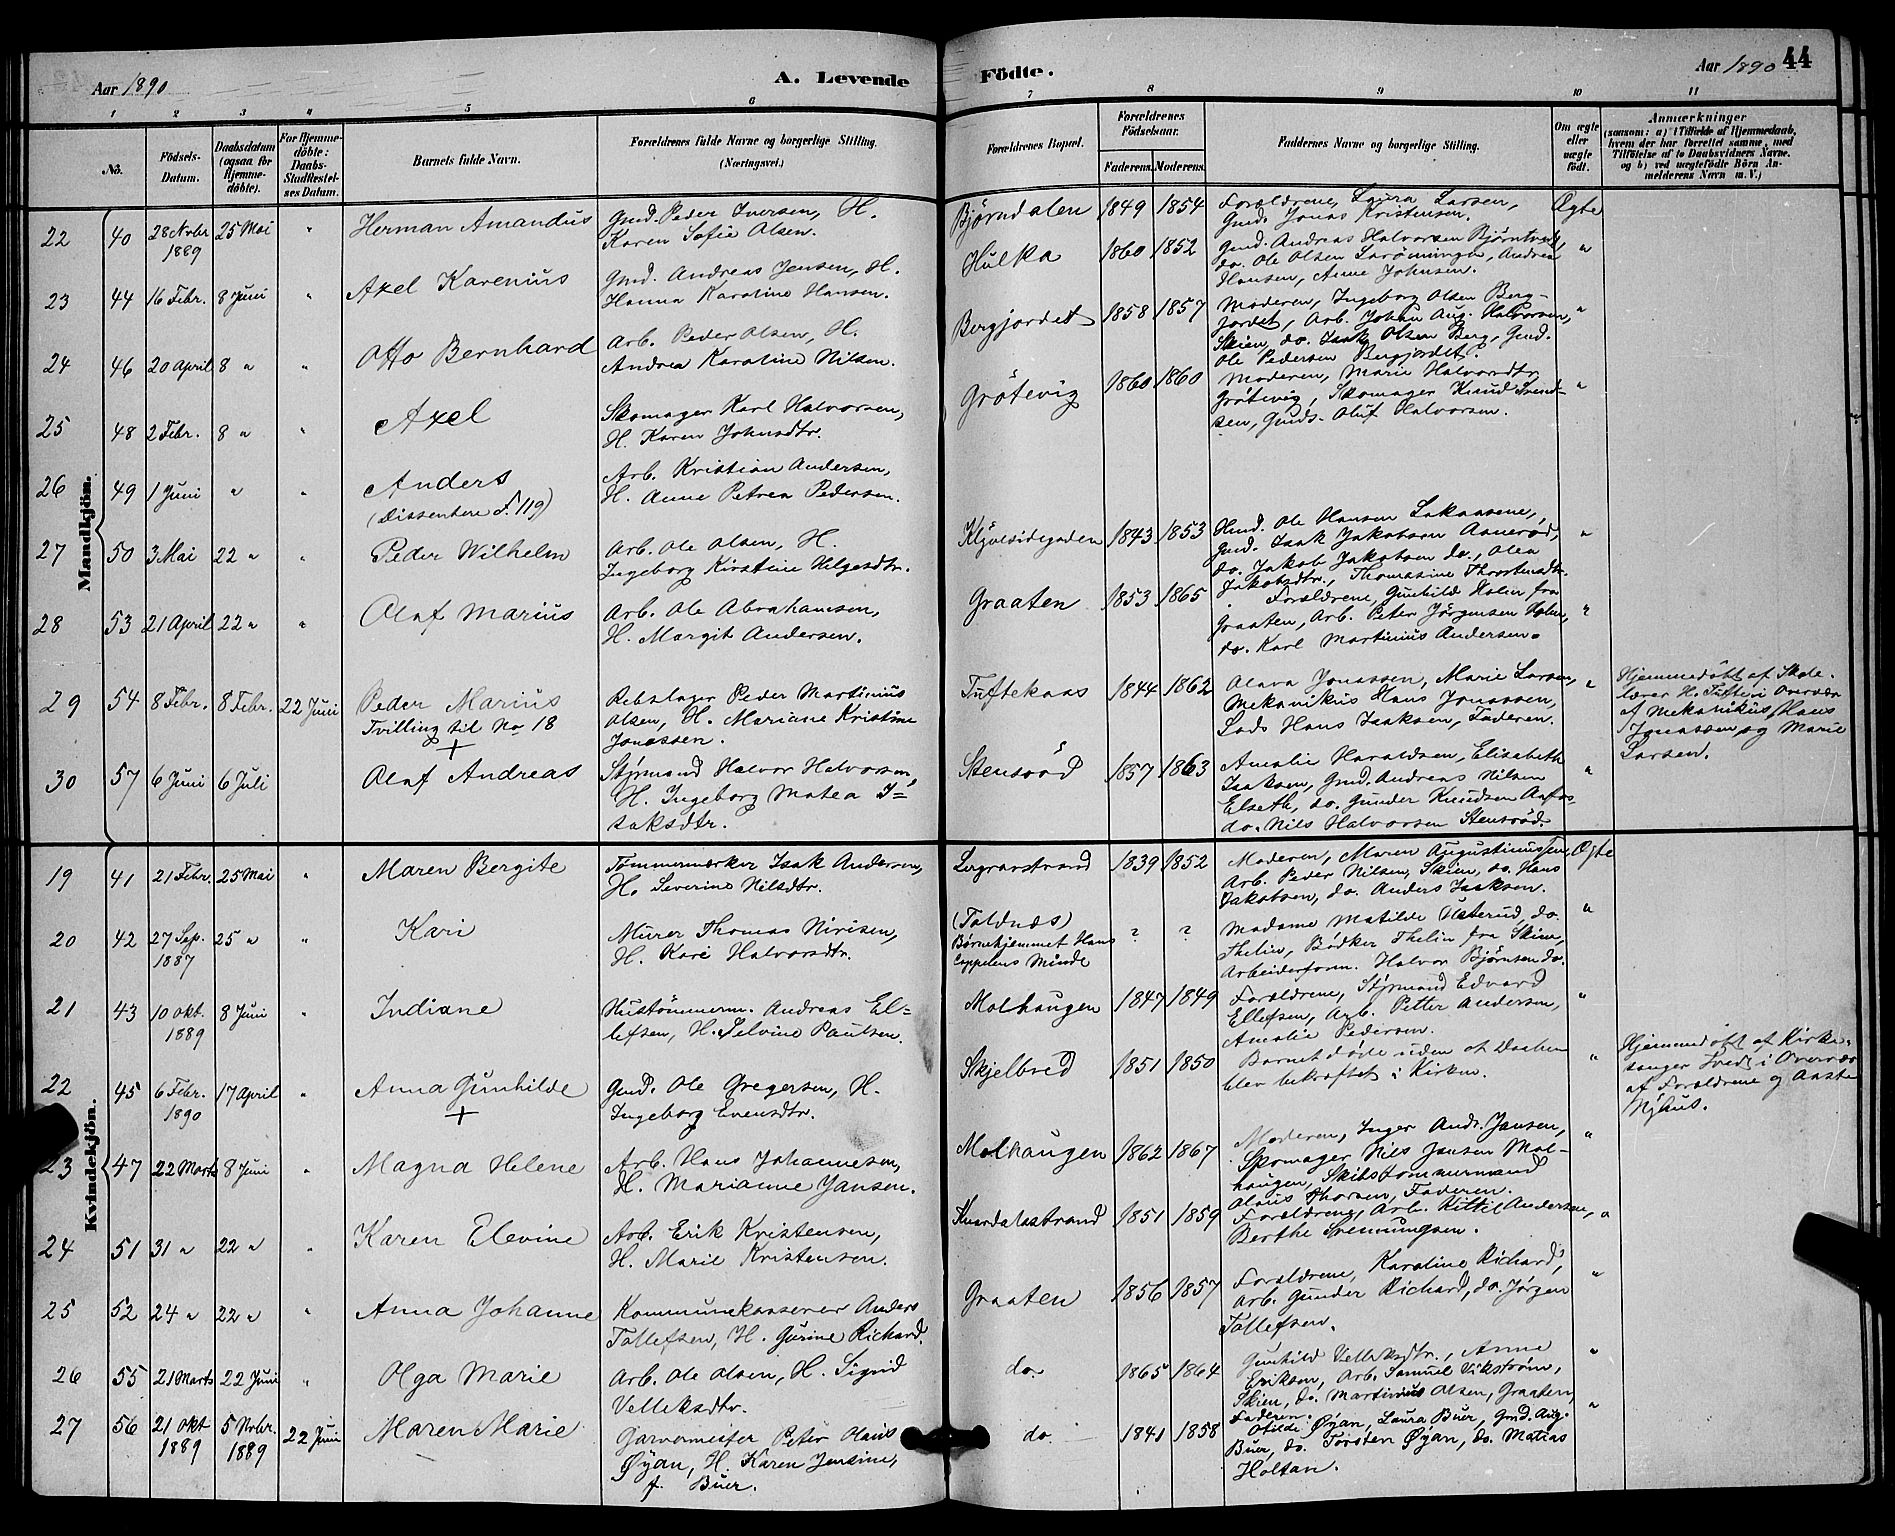 Aar 1890
A. Levende
Födte.
Aar 1890
44
1 2 3 4 5 6 7 8 9 10 11
No.
Födsels-
Datum.
Daabsdatum
(ogsaa for
Hjemme-
döbte).
For Hjemme-
döbte:
Daabs-
Stadfæstel-
ses Datum.
Barnets fulde Navn.
Forældrenes fulde Navne og borgerlige Stilling.
(Næringsvei.)
Forældrenes Bopæl.
Forældrenes
Födselsaar.
Faderens.
Moderens.
Faddernes Navne og borgerlige Stilling.
Om ægte
eller
uægte
født.
Anmærkninger
(saasom: a) i Tilfælde af Hjemmedaab,
hvem der har forrettet samme, med
Tilföielse af to Daabsvidners Navne.
og b) ved uægtefödte Börn An-
melderens Navn m. V.)
Mandkjön.
22 40 28 Novbr. 1889 25 Mai " Herman Amandus
Gmd. Peder Iversen, H.
Karen Sofie Olsen.
Bjørndalen 1849 1854
Forældrene, Laura Larsen,
Gmd. Jonas Kristensen.
Ægte
23 44 16 Febr. 8 Juni " Axel Karenius
Gmd. Andreas Jensen, H.
Hanna Karoline Hansen.
Hulka 1860 1852
Gmd. Andreas Halvorsen Bjørntvedt,
do. Ole Olsen Andrea
Hansen, Anne Johnsen.
"
24 46 20 April 8 " " Otto Bernhard
Arb. Peder Olsen, H.
Andrea Karoline Nilsen.
Bergjordet 1858 1857
Moderen, Ingeborg Olsen Berg-
jordet, Arb. Johan Aug. Halvorsen,
Skien, do. Isak Olsen Berg, Gmd.
Ole Pedersen Bergjordet.
"
25 48 2 Febr. 8 " " Axel
Skomager Karl Halvorsen,
H. Karen Johnsdtr.
Grötevig 1860 1860
Moderen, Marie Halvorsdtr.
Grötevig, Skomager Knud Svend-
sen, Gmds. Oluf Halvorsen.
"
26 49 1 Juni " " Anders
(Dissentere f. 119)
Arb. Kristian Andersen,
H. Anne Petrea Pedersen.
27 50 3 Mai 22 " " Peder Wilhelm
Arb. Ole Olsen, H.
Ingeborg Kirstine Helgesdtr.
Kljøvsidegaden 1843 1853
Hmd. Ole Hansen
Gmd. Isak Jakobsen
do. Jakob Jakobsen do., Olea
Jakobsdtr., Thomasine Thorstensdtr.
"
28 53 21 April 22 " " Olaf Marius
Arb. Ole Abrahamsen,
H. Margit Andersen.
Graaten 1853 1865
Forældrene, Gunhild Holm fra
Graaten, Arb. Peter Jørgensen Holm,
do. Karl Martinius Andersen.
"
29 54 8 Febr. 8 Febr. 22 Juni Peder Marius
Tvilling til No 18
+
Rebslager Peder Martinius
Olsen, H. Mariane Kristine
Jonassen.
Tuftekaas 1844 1862
Olava Jonassen, Marie Larsen,
Mekanikus Hans Jonassen,
Lods Hans Isaksen, Faderen.
"
Hjemmedöbt af Skole-
lærer H. Tufte i Overvær
af Mekanikus Hans
Jonassen og Marie
Larsen.
30 57 6 Juni 6 Juli Olaf Andreas
Styrmand Halvor Halvorsen,
H. Ingeborg Matea I=
saksdtr.
Stensrød 1857 1863
Amalie Haraldsen, Elisabeth
Isaksen, Gmd. Andreas Nilsen
Elseth, do. Gunder Knudsen
do. Nils Halvorsen Stensrød.
"
Kvindekjön.
19 41 21 Febr. 25 Mai " Maren Bergite
Tømmermærker Isak Andersen,
H. Severine Nilsdtr.
1839 1852
Moderen, Maren Augustinussen,
Arb. Peder Nilsen, Skien, do. Hans
Jakobsen, do. Anders Isaksen.
Ægte
20 42 27 Sep. 1887 25 " " Kari
Murer Thomas Nirisen,
H. Kari Halvorsdtr.
(Toldnæs)
Børnehjemmet Hans
Cappelens Minde
? ?
Madame Matilde do.
Thelin, Bødker Thelin fra Skien,
Arbeiderform. Halvor Bjørnsen do.
"
21 43 10 Okt. 1889 8 Juni " Indiane
Hustömmerm. Andreas El=
lefsen, H. Selvine Paulsen.
Molhaugen 1847 1849
Forældrene, Styrmand Edvard
Ellefsen, Arb. Petter Andersen,
Amalie Pedersen.
"
22 45 6 Febr. 1890 17 April " Anna Gunhilde
+
Gmd. Ole Gregersen, H.
Ingeborg Evensdtr.
Skjelbred 1851 1850
Barnet døde uden at Daaben
blev bekræftet i Kirken.
"
Hjemmedöbt af Kirke-
sanger i Overvær
af Forældrene og Aaste
23 47 22 Marts 8 Juni " Magna Helene
Arb. Hans Johannesen,
H. Marianne Jansen.
Molhaugen 1862 1867
Moderen, Inger Andr. Jansen,
Skomager Nils Jansen Mol-
haugen, Skibstømmermand
Olaus Thorsen, Faderen.
"
24 51 31 " 22 " " Karen Elevine
Arb. Erik Kristensen,
H. Marie Kristensen.
1851 1859
Forældrene, Arb. Kittil Andersen,
Berthe Svenungsen.
"
25 52 24 " 22 " " Anna Johanne
Kommunekasserer Anders
Tollefsen, H. Gurine Richard.
Graaten 1856 1857
Forældrene, Karoline Richard,
Arb. Gunder Richard, do. Jørgen
Tollefsen.
"
26 55 21 Marts 22 Juni " Olga Marie
Arb. Ole Olsen, H. Sigrid
Velleksdtr.
do. 1865 1864
Gunhild Velleksdtr., Anne
Eriksen, Arb. Samuel Vikstrøm,
Skien, do. Martinius Olsen, Graaten,
Faderen.
"
27 56 21 Okt 1889 5 Novbr. 1889 22 Juni Maren Marie
Garvermester Peter Olaus
Øyan, H. Karen Jensine,
f. Buer.
do. 1841 1858
Otilde Øyan, Laura Buer, Gmd. Aug.
Buer, do. Torsten Øyan, do. Matias
Holtan.
"